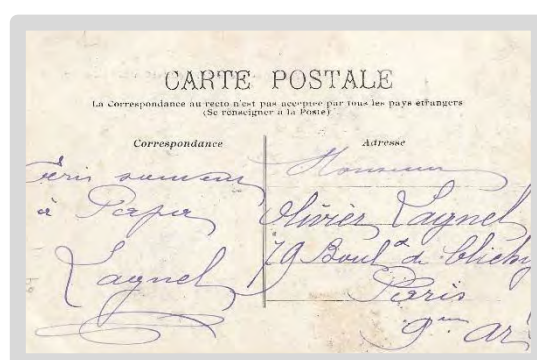 CARTE POSTALE
La Correspondance au recto n'est pas acceptée par tous les pays étrangers
(Se renseigner à la Poste)
Correspondance
écris souvent
à Papa
Lagnel
Adresse
Monsieur
Olivier Lagnel
79 Boul d de Clichy
Paris
9em Ar t